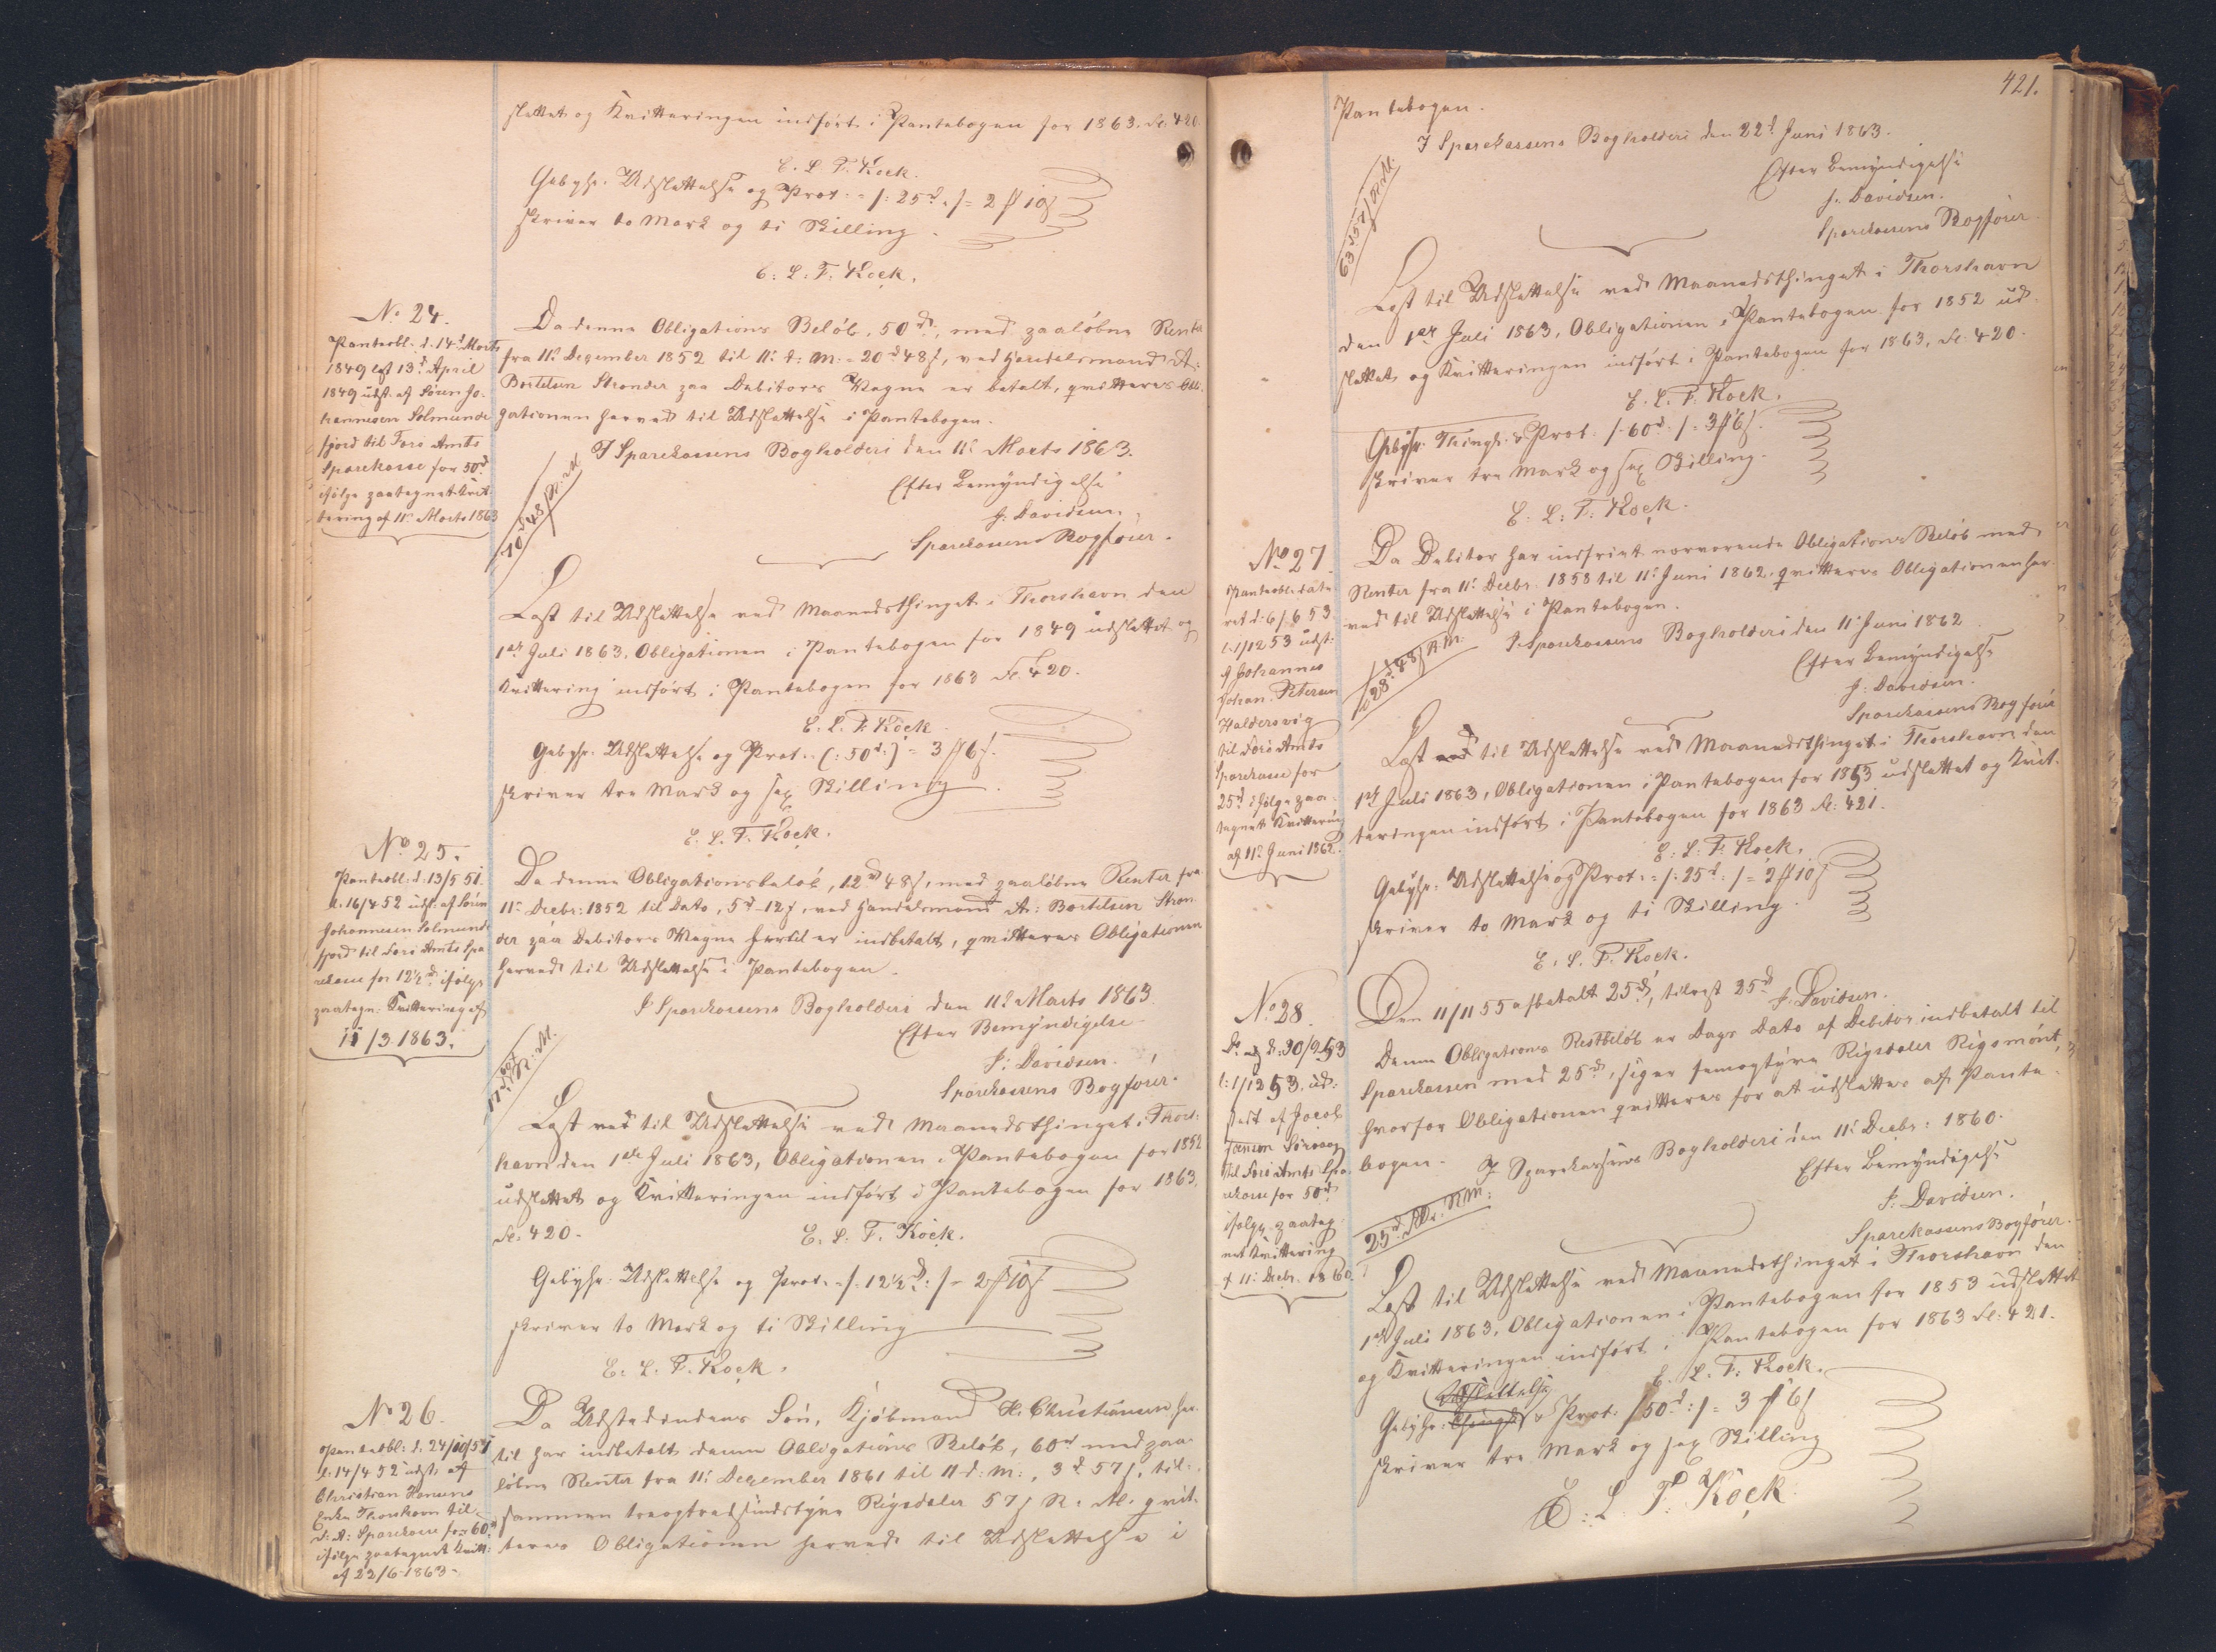 slettet og Kvitteringen indført i Pantebogen for 1863. Fo. 420.
E. L. F. Kock.
Gebyhr. Udslettelse og Prot. = /: 25d. :/ = 2 ℳ 10 ſ
skriver to Mark og ti Skilling.
E: L: F. Kock.
No 24.
Panteobl. d. 14d Marts
1849 læst 13d April
1849 udst. af Søren Jo-
hannesen Solmunde
fjord til Forø Amts
Sparekasse for 50d
ifølge paategnet Kvit-
tering af 11te Marts 1863
Da denne Obligations Beløb, 50d, med paaløbne Renter
fra 11te Dezember 1852 til 11te d: M: = 20d 48ſ, ved Handelsmand A:
Bertelsen Strender paa Debitors Vegne er betalt, qvitteres Obli-
gationen herved til Udslettelse i Pantebogen.
I Sparekassens Bogholderi den 11te Marts 1863.
Efter Bemyndigelse
J. Davidsen.
Sparekassens Bogfører.
70d 48ſ R. M.
Læst til Udslettelse ved Maanedsthinget i Thorshavn den
1ste Juli 1863, Obligationen i Pantebogen for 1849 udslettet og
Kvittering indført i Pantebogen for 1863 Fo. 420.
E. L. F. Kock
Gebyhr: Udslettelse og Prot. (: 50d :) = 3 ℳ 6 ſ.
skriver tre Mark og sex Skilling.
E. L. F. Kock.
No 25.
Panteobl: d. 13/5 51.
l. 16/4 52 udst. af Søren
Johannesen Solmunde
fjord til Forø Amts Spa
rekasse for 12½d ifølge
paategn. Kvittering af
11/3 1863.
Da denne Obligationsbeløb, 12d 48ſ, med paaløbne Renter fra
11te Decbr: 1852 til Dato, 5d 12ſ, ved Handelsmand A: Bertelsen Stren-
der paa Debitors Vegne hertil er indbetalt, qvitteres Obligationen
herved til Udslettelse i Pantebogen.
I Sparekassens Bogholderi den 11te Marts 1863.
Efter Bemyndigelse
J: Davidsen.
Sparekassens Bogfører.
17d 60ſ R: M.
Læst ved til Udslettelse ved Maanedsthinget i Thors-
havn den 1ste Juli 1863, Obligationen i Pantebogen for 1852
udslettet og Kvitteringen indført i Pantebogen for 1863,
Fo. 420.
E. L. F. Kock.
Gebyhr: Udslettelse og Prot. = /: 12½d :/ = 2 ℳ 10 ſ
skriver to Mark og ti Skilling
E: L. F. Kock.
No 26.
Panteobl: d. 24/10/51
l. 14/4 52 udst. af
Christian Hansens
Enke Thorshavn til
F: A: Sparekasse for 60d
ifølge paategnet Kvitt:
af 22/6 1863.
Da Udstederindens Søn, Kjøbmand H. Christiansen her-
til har indbetalt denne Obligations Beløb, 60d med paa-
løbne Renter fra 11te Dezember 1861 til 11 d: M:, 3d 57ſ, til-
sammen treogtredsindstyve Rigsdaler 57ſ R. M. qvit-
teres Obligationen herved til Udslettelse i
421.
Pantebogen.
I Sparekassens Bogholderi den 22d Juni 1863.
Efter Bemyndigelse
J. Davidsen.
Sparekassens Bogfører
63d 57ſ R. M.
Læst til Udslettelse ved Maanedsthinget i Thorshavn
den 1ste Juli 1863, Obligationen i Pantebogen for 1852 ud-
slettet og Kvitteringen indført i Pantebogen for 1863, Fo. 420.
E. L. F. Kock.
Gebyhr. Thingl. & Prot. /: 60d :/ = 3 ℳ 6 ſ.
skriver tre Mark og sex Skilling.
E. L: F: Kock.
No 27.
Panteobl. date
ret d. 6/6 53
l. 1/12 53 udst:
af Johannes
Johan. Petersen
Haldersvig
til Forø Amts
Sparekasse for
25d ifølge paa-
tegnet Kvittering
af 11te Juni 1862.
Da Debitor har indfriet nærværende Obligations Beløb med
Renter fra 11te Decbr. 1858 til 11te Juni 1862, qvitteres Obligationen her-
ved til Udslettelse i Pantebogen.
I Sparekassens Bogholderi den 11te Juni 1862
Efter Bemyndigelse
J: Davidsen.
Sparekassens Bogfører
28d 48ſ R. M.
Læst ved til Udslettelse ved Maanedsthinget i Thorshavn den
1ste Juli 1863, Obligationen i Pantebogen for 1853 udslettet og Kvit-
teringen indført i Pantebogen for 1863 Fo: 421.
E: L: F. Kock.
Gebyhr: Udslettelse og Prot. = /: 25d :/ = 2 ℳ 10 ſ
skriver to Mark og ti Skilling.
E. L. F. Kock.
No 28.
Do. d. 30/9 53
l: 1/12 53. ud-
stedt af Jacob
Jansen Sørvaag
til Forø Amts Spa
rekasse for 50d
ifølge paateg-
net Kvittering
af 11te Decbr. 1860
Den 11/11 55 afbetalt 25d, tilrest 25d
J. Davidsen.
Denne Obligations Restbeløb er Dags Dato af Debitor indbetalt til
Sparekassen med 25d, siger femogtyve Rigsdaler Rigsmønt,
hvorfor Obligationen qvitteres for at udslettes af Pante-
bogen.
I Sparekassens Bogholderi den 11te Decbr: 1860.
Efter Bemyndigelse
J: Davidsen.
Sparekassens Bogfører.
25d R: M:
Læst til Udslettelse ved Maanedsthinget i Thorshavn den
1ste Juli 1863, Obligationen i Pantebogen for 1853 udslettet
og Kvitteringen indført i Pantebogen for 1863 Fo: 421.
E. L. F. Kock.
Udslettelse
Gebyhr: Thingl. & Prot: /: 50d :/ = 3 ℳ 6 ſ
skriver tre Mark og sex Skilling
E: L. F. Kock.